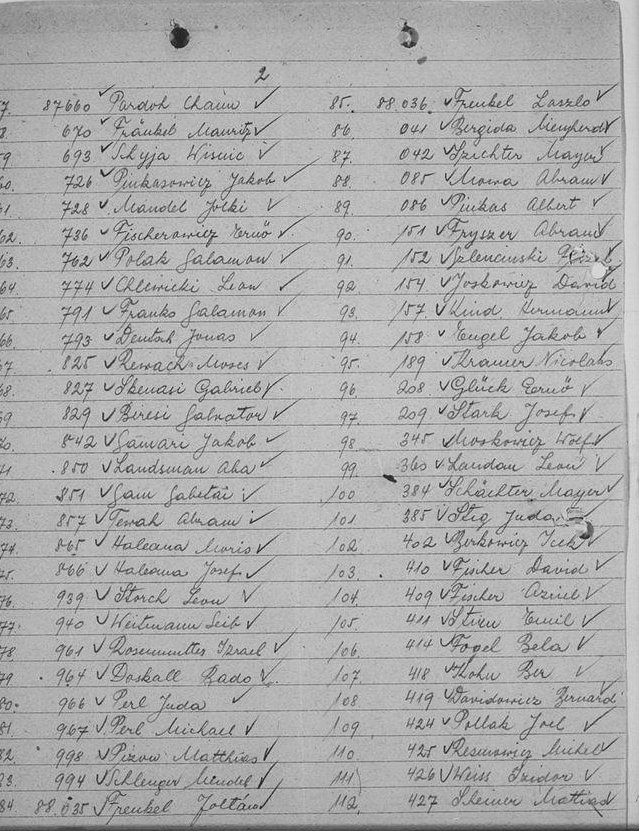 2
7 87660 Pardoh Chaim
8 670 Fränkel Mauritz
59. 693 Schyja
60. 726 Pinkasowicz Jakob
61 728 Mandel Jolki
62. 736 Fischerowicz Ernö
63. 762 Polak Salamon
64 774 Chlewicki Leon
65 791 Franko Salamon
66. 793 Deutsch Jonas
67. 825 Rewach Moses
68. 827 Skenasi Gabriel
69 829 Beresi Salvator
70. 842 Gawari Jakob
71 .850 Landsman Aba
72. 851 Gam Sabetai
73. 857 Tewah Abram
74. 865 Haleana Moris
75. 866 Haleana Josef
76. 939 Storch Leon
77. 940 Weitmann Leib
78 961 Rosenmutter Izrael
79 964 Doskall Rado
80. 966 Perl Juda
81. 967 Perl Michael
82. 998 Pizow Matthias
83. 994 Schlenger Mendel
84 88.035 Frenkel Zoltán
85. 88.036. Frenkel Laszlo
86. 041 Bergida Menyherdt
87. 042 Szichter Mayer
88. 085 Mowa Abram
89. 086 Pinkas Albert
90. 151 Fryszer Abram
91. 152 Szlencinski
92. 154 Joskowicz David
93. 157. Kind Hermann
94. 158 Engel Jakob
95. 189 Kramer Nicolaus
96. 208 Glück Ernö
97. 209 Stark Josef
98 345 Moskowicz Wolf
99. 360 Landau Leon
100 384 Schächter Mayer
101. 385 Stig Juda
102. 402 Berkowicz Icek
103. 410 Fischer David
104. 409 Fischer Aziel
105. 411 Emil
106. 414 Fogel Bela
107. 418 Kohn Ber
108 419 Davidowicz Bernard
109 424 Pollak Joel
110. 425 Resmowicz Michel
111 426 Weiss Izidor
112. 427 Steiner Mathias